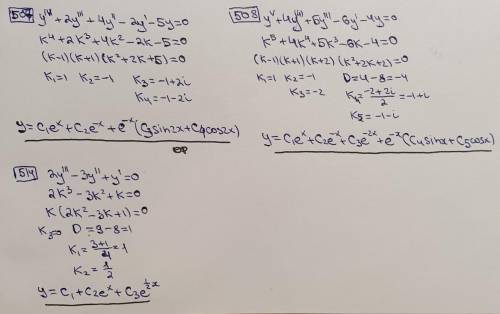 507 y^IV + 2y''' + 4y'' - 2y' - 5y = 0
k^4 + 2k^3 + 4k^2 - 2k - 5 = 0
(k-1)(k+1)(k^2+2k+5) = 0
k1 = 1 k2 = -1 k3 = -1+2i
k4 = -1-2i
y = C1e^x + C2e^-x + e^-x(C3sin2x + C4cos2x)
508 y^V + 4y^IV + 5y''' - 6y' - 4y = 0
k^5 + 4k^4 + 5k^3 - 6k - 4 = 0
(k-1)(k+1)(k+2)(k^2+2k+2) = 0
k1 = 1 k2 = -1 D = 4-8 = -4
k3 = -2 k4 = (-2+2i)/2 = -1+i
k5 = -1-i
y = C1e^x + C2e^-x + C3e^-2x + e^-x(C4sinx + C5cosx)
514 2y''' - 3y'' + y' = 0
2k^3 - 3k^2 + k = 0
k(2k^2 - 3k + 1) = 0
k3 = 0 D = 9-8 = 1
k1 = (3+1)/4 = 1
k2 = 1/2
y = C1 + C2e^x + C3e^(1/2 x)